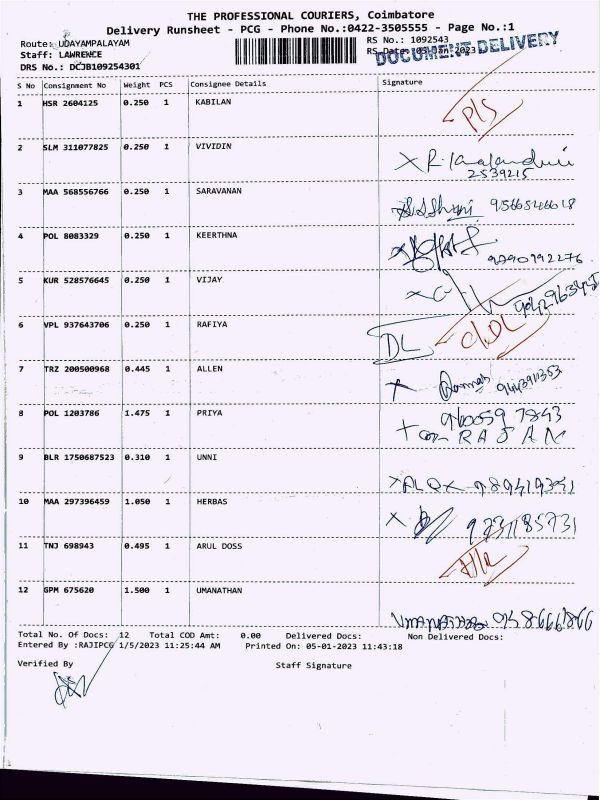 THE PROFESSIONAL COURIERS, Coimbatore
Delivery Runsheet - PCG - Phone No.:0422-3505555 - Page No.:1
Route: UDAYAMPALAYAM
RS No.: 1092543
Staff: LAWRENCE
RS Date: 05-Jan-2023
DOCUMENT DELIVERY
DRS No.: DCJB109254301
S No Consignment No Weight PCS Consignee Details Signature
1 HSR 2604125 0.250 1 KABILAN
P/S
2 SLM 311077825 0.250 1 VIVIDIN
2539215
3 MAA 568556766 0.250 1 SARAVANAN
9566546618
4 POL 8083329 0.250 1 KEERTHNA
9790992276
5 KUR 528576645 0.250 1 VIJAY
6 VPL 937643706 0.250 1 RAFIYA
DL
7 TRZ 200500968 0.445 1 ALLEN
9443911353
8 POL 1203786 1.475 1 PRIYA
960059 7843
RAJAN
9 BLR 1750687523 0.310 1 UNNI
10 MAA 297396459 1.050 1 HERBAS
11 TNJ 698943 0.495 1 ARUL DOSS
12 GPM 675620 1.500 1 UMANATHAN
Total No. Of Docs: 12 Total COD Amt: 0.00 Delivered Docs: Non Delivered Docs:
Entered By :RAJIPCG 1/5/2023 11:25:44 AM Printed On: 05-01-2023 11:43:18
Verified By Staff Signature